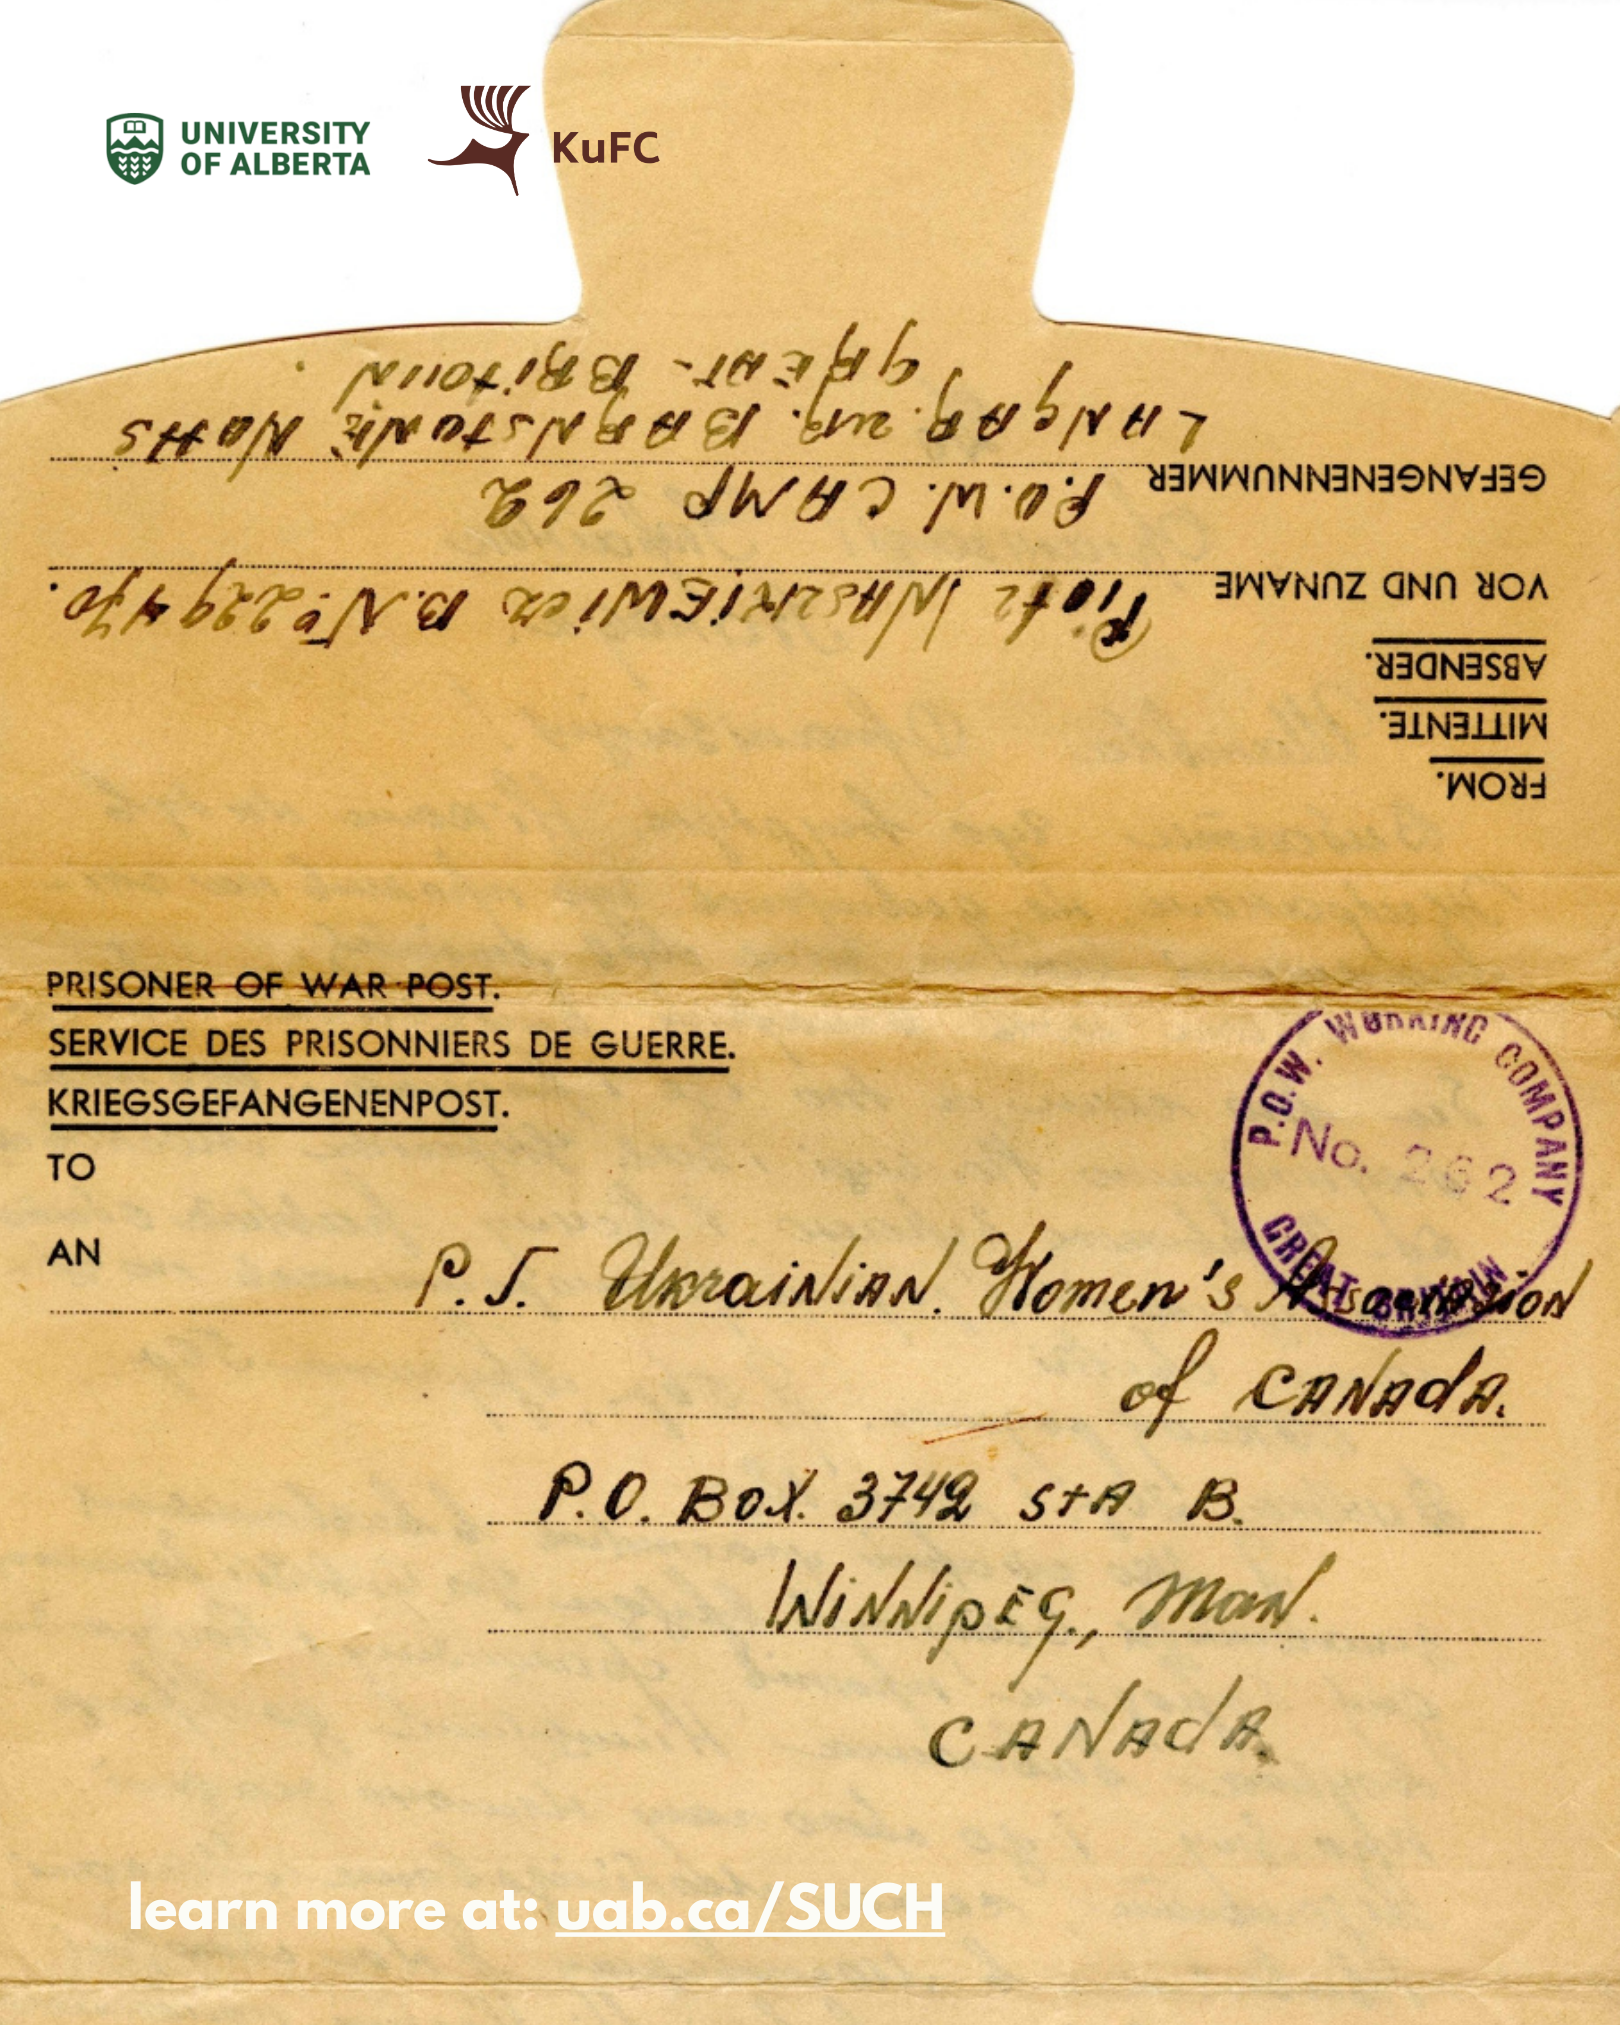 UNIVERSITY
OF ALBERTA
KuFC
FROM.
MITTENTE.
ABSENDER.
VOR UND ZUNAME Piotz WASZKiEWicz B.No. 229470.
GEFANGENENNUMMER P.O.W. CAMP 262
LANgAR. BARNstoNE Notts
gREAT-BRitaiN.
PRISONER OF WAR POST.
SERVICE DES PRISONNIERS DE GUERRE.
KRIEGSGEFANGENENPOST.
TO
AN
P.O.W. WORKING COMPANY
No. 262
GREAT BRITAIN
P.J. UkraiNiaN. Women's AssociasioN
of CANAdA.
P.O. BOX. 3742 stA B.
WiNNipEg., MaN.
CANAdA.
learn more at: uab.ca/SUCH